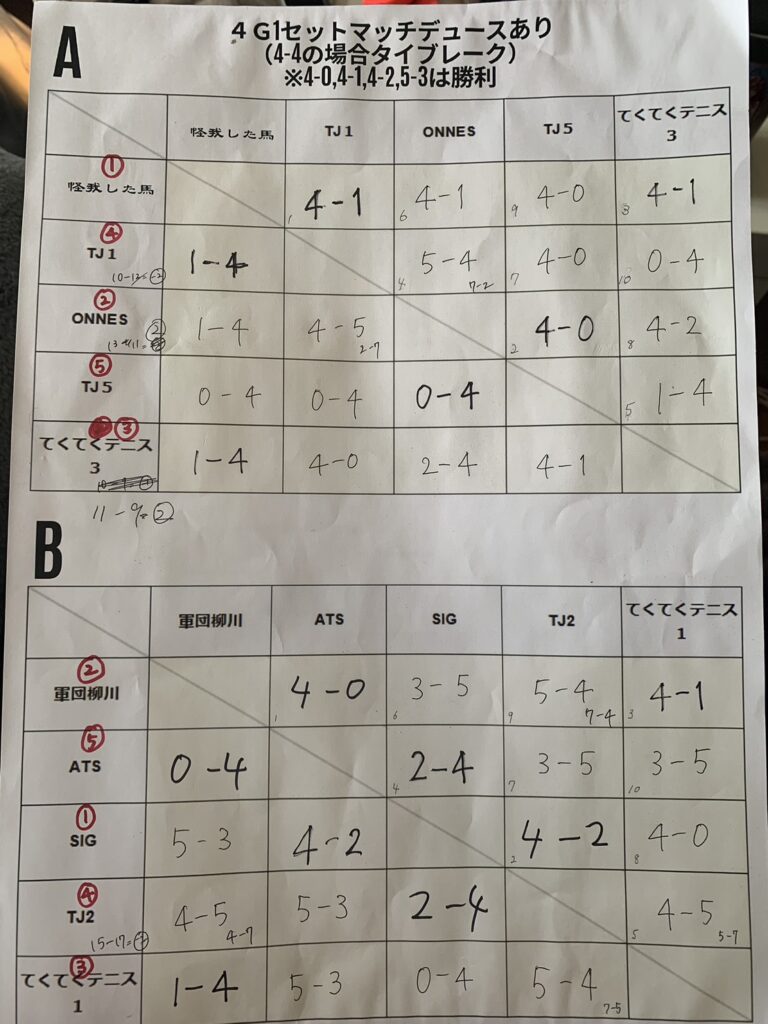 A
4G1セットマッチデュースあり
(4-4の場合タイブレーク)
※4-0,4-1,4-2,5-3は勝利
怪我した馬 TJ1 ONNES TJ5 てくてくテニス3
① 怪我した馬 1 4-1 6 4-1 9 4-0 3 4-1
④ TJ1 10-12=-2 1-4 4 5-4 7-2 7 4-0 10 0-4
② ONNES ② 1-4 4-5 2-7 2 4-0 8 4-2
⑤ TJ5 0-4 0-4 0-4 5 1-4
③ てくてくテニス3 1-4 4-0 2-4 4-1
11-9=②
B
軍団柳川 ATS SIG TJ2 てくてくテニス1
② 軍団柳川 1 4-0 6 3-5 9 5-4 7-4 3 4-1
⑤ ATS 0-4 4 2-4 7 3-5 10 3-5
① SIG 5-3 4-2 2 4-2 8 4-0
④ TJ2 15-17= 4-5 4-7 5-3 2-4 5 4-5 5-7
③ てくてくテニス1 1-4 5-3 0-4 5-4 7-5